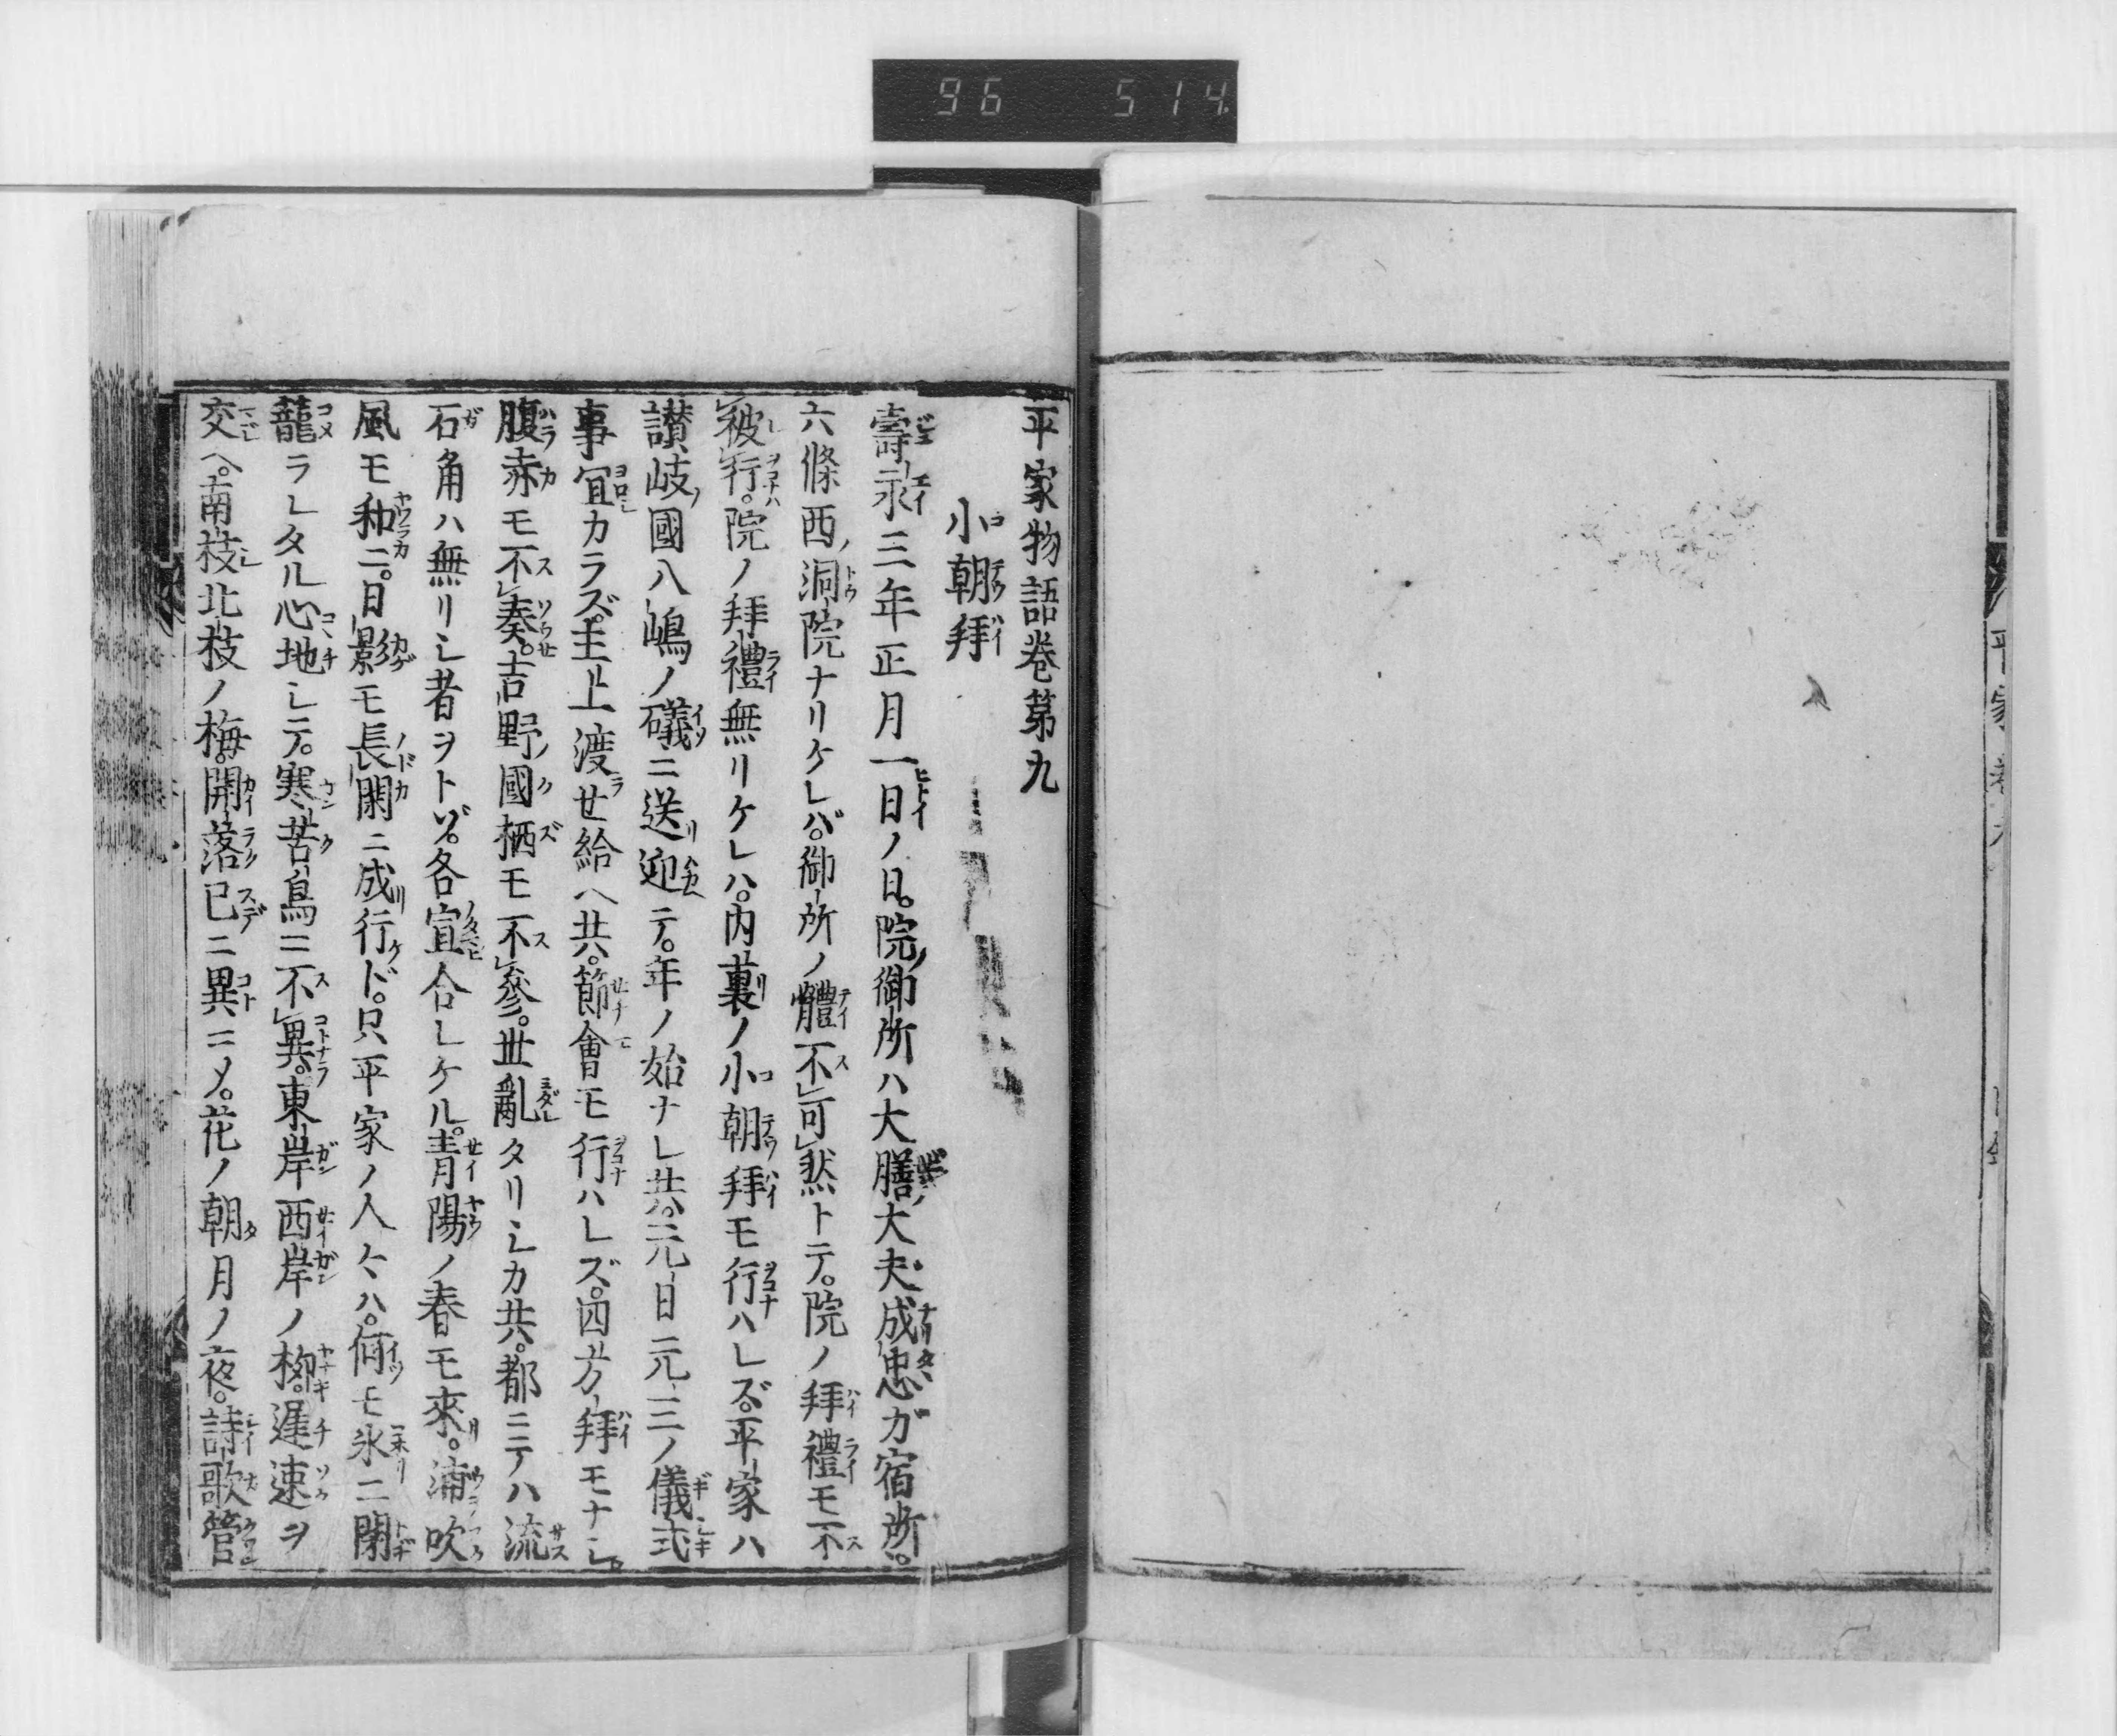 96 514
平家物語卷第九
小朝拜
壽永三年正月一日ノ日。院ノ御所ハ大膳ノ大夫成忠ガ宿所。
六條西ノ洞院ナリケレバ。御所ノ體不可然トテ。院ノ拜禮モ不
被行。院ノ拜禮無リケレハ。内裏ノ小朝拜モ行ハレズ。平家ハ
讃岐ノ國八嶋ノ礒ニ送リ迎テ。年ノ始ナレ共。元日元三ノ儀式
事宜カラズ。主上渡ラせ給ヘ共。節會モ行ハレズ。四方拜モナし
腹赤モ不奏。吉野ノ國栖モ不參。世亂タリシカ共。都ニテハ流
石角ハ無リシ者ヲトゾ。各宣合レケル。青陽ノ春モ來リ。浦吹
風モ和ニ。日影モ長閑ニ成行ケド。只平家ノ人々ハ。何モ氷ニ閉
籠ラレタル心地シテ。寒苦鳥ニ不異。東岸西岸ノ柳。遲速ヲ
交ヘ。南枝北枝ノ梅。開落已ニ異ニメ。花ノ朝月ノ夜。詩歌管